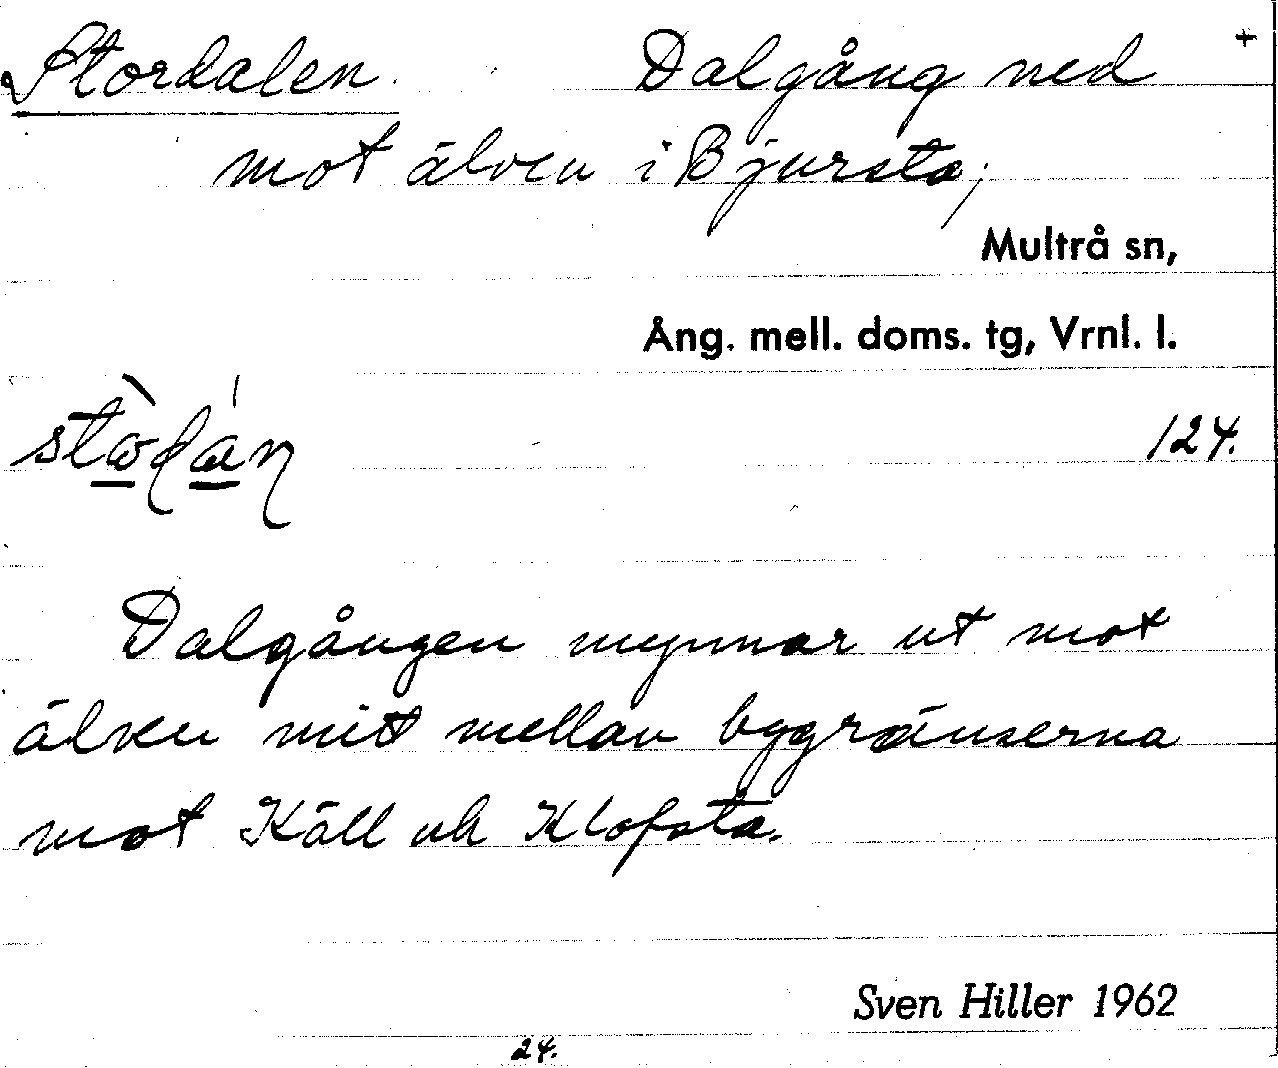 Stordalen. Dalgång ned +
mot älven i Bjursta;
Multrå sn,
Ång. mell. doms. tg, Vrnl. l.
124.
Dalgången mynnar ut mot
älven mitt mellan bygränserna
mot Käll och Klofsta.
Sven Hiller 1962
24.